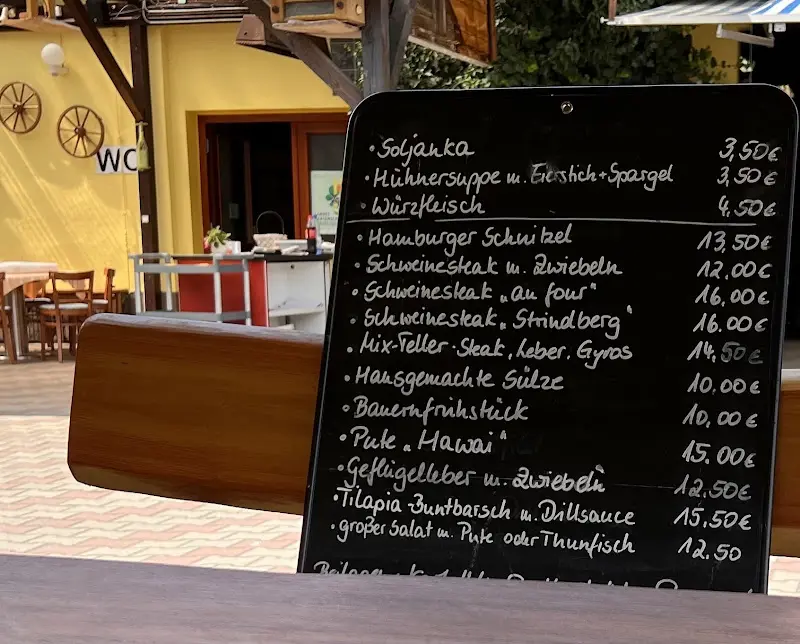 WC
· Soljanka 3,50€
· Hühnersuppe m. Eierstich+Spargel 3,50€
· Würzfleisch 4,50€
· Hamburger Schnitzel 13,50€
· Schweinesteak m. Zwiebeln 12,00€
· Schweinesteak „au four“ 16,00€
· Schweinesteak „Strindberg“ 16.00€
· Mix-Teller-Steak, Leber, Gyros 14,50€
· Hausgemachte Sülze 10,00€
· Bauernfrühstück 10,00€
· Pute „Hawai“ 15.00€
· Geflügelleber m. Zwiebeln 12,50€
· Tilapia-Buntbarsch m. Dillsauce 15,50€
· großer Salat m. Pute oder Thunfisch 12.50